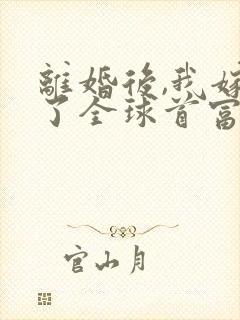 離婚後,我嫁
了全球首富
官山月